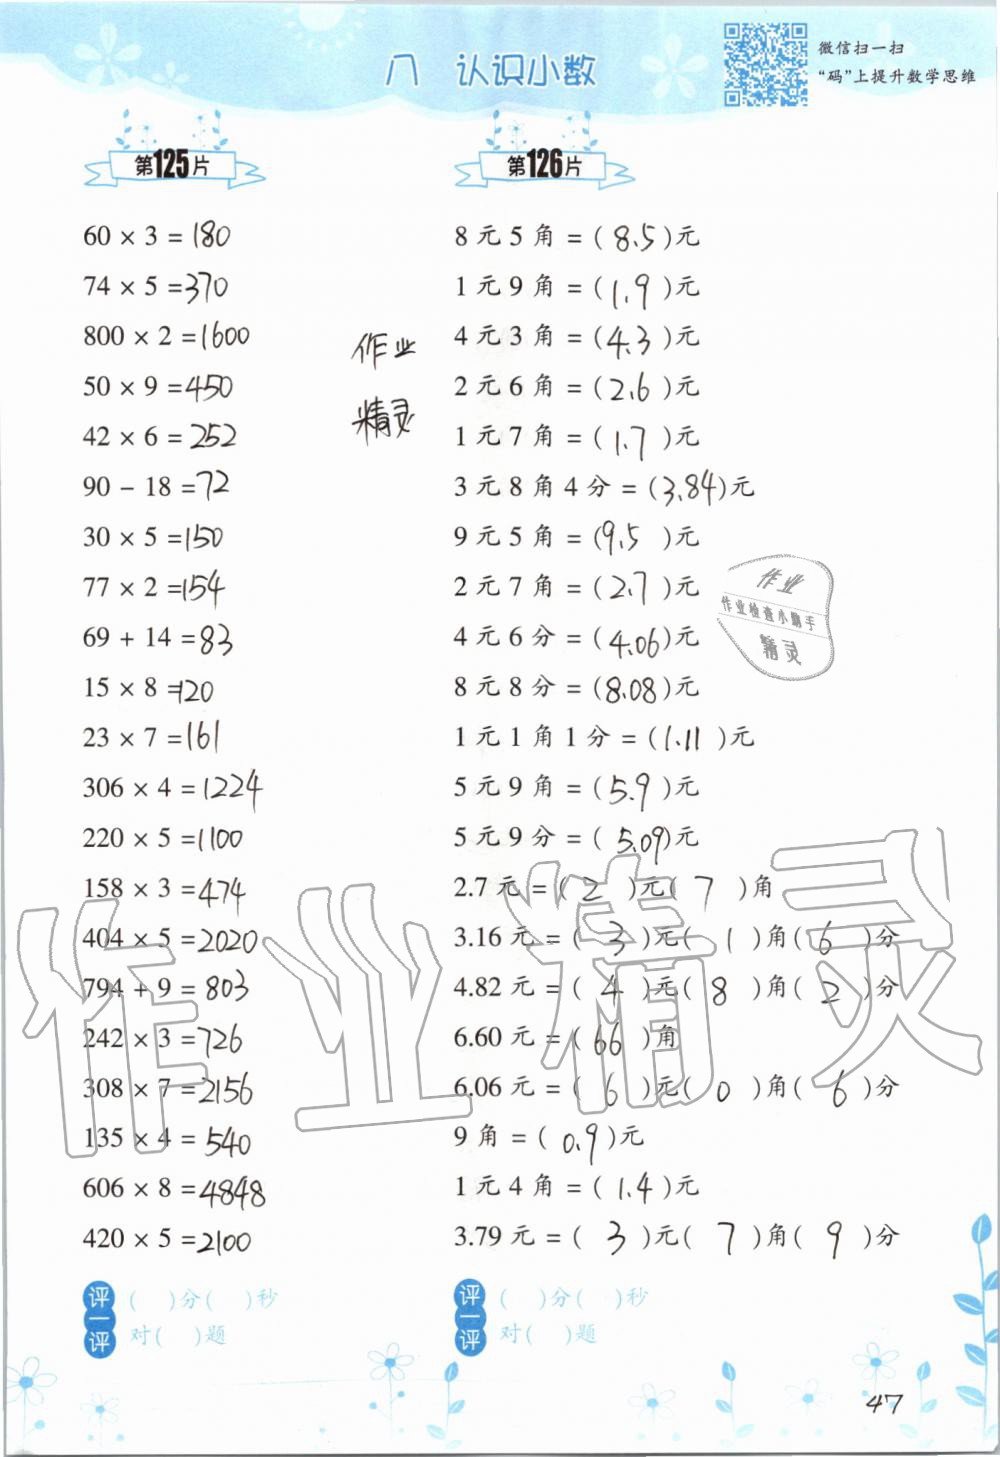 八 认识小数
微信扫一扫
“码”上提升数学思维
第125片
60 × 3 = 180
74 × 5 = 370
800 × 2 = 1600
50 × 9 = 450
42 × 6 = 252
90 − 18 = 72
30 × 5 = 150
77 × 2 = 154
69 + 14 = 83
15 × 8 = 120
23 × 7 = 161
306 × 4 = 1224
220 × 5 = 1100
158 × 3 = 474
404 × 5 = 2020
794 + 9 = 803
242 × 3 = 726
308 × 7 = 2156
135 × 4 = 540
606 × 8 = 4848
420 × 5 = 2100
评一评
( )分( )秒
对( )题
作业
精灵
第126片
8 元 5 角 = ( 8.5 )元
1 元 9 角 = ( 1.9 )元
4 元 3 角 = ( 4.3 )元
2 元 6 角 = ( 2.6 )元
1 元 7 角 = ( 1.7 )元
3 元 8 角 4 分 = ( 3.84 )元
9 元 5 角 = ( 9.5 )元
2 元 7 角 = ( 2.7 )元
4 元 6 分 = ( 4.06 )元
8 元 8 分 = ( 8.08 )元
1 元 1 角 1 分 = ( 1.11 )元
5 元 9 角 = ( 5.9 )元
5 元 9 分 = ( 5.09 )元
2.7 元 = ( 2 )元( 7 )角
3.16 元 = ( 3 )元( 1 )角( 6 )分
4.82 元 = ( 4 )元( 8 )角( 2 )分
6.60 元 = ( 66 )角
6.06 元 = ( 6 )元( 0 )角( 6 )分
9 角 = ( 0.9 )元
1 元 4 角 = ( 1.4 )元
3.79 元 = ( 3 )元( 7 )角( 9 )分
评一评
( )分( )秒
对( )题
作业
作业检查小助手
精灵
作业精灵
47